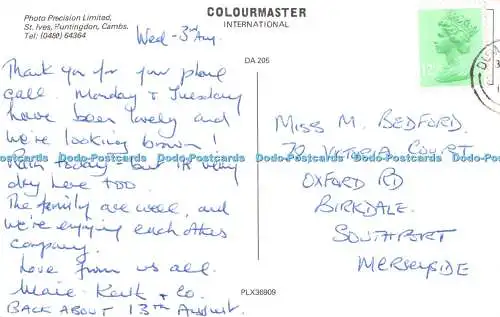 Photo Precision Limited,
St. Ives, Huntingdon, Cambs.
Tel: (0480) 64364
COLOURMASTER
INTERNATIONAL
Wed - 3rd Aug.
DA 205
Thank you for your phone
call. Monday & Tuesday
have been lovely and
we're looking brown!
Rain today - but it's very
dry here too.
The family are well, and
we're enjoying each others
company.
Love from us all.
Marie - Keith & Co.
BACK ABOUT 13TH AUGUST.
MISS M. BEDFORD.
70 VICTORIA COURT
OXFORD RD
BIRKDALE.
SOUTHPORT
MERSEYSIDE
PLX36909
12
Dodo-Postcards Dodo-Postcards Dodo-Postcards Dodo-Postcards Dodo-Postcards